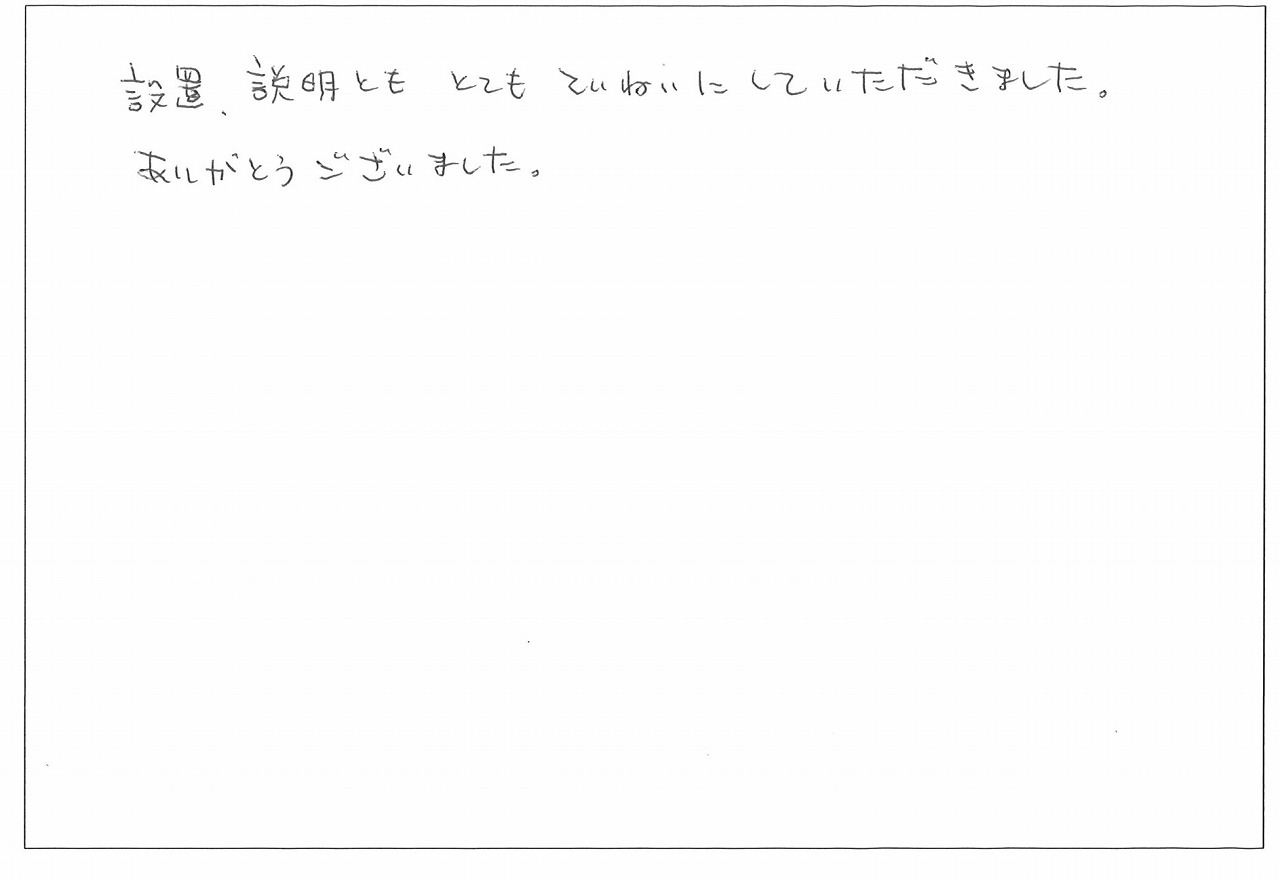 設置、説明とも とても ていねいにしていただきました。
ありがとうございました。